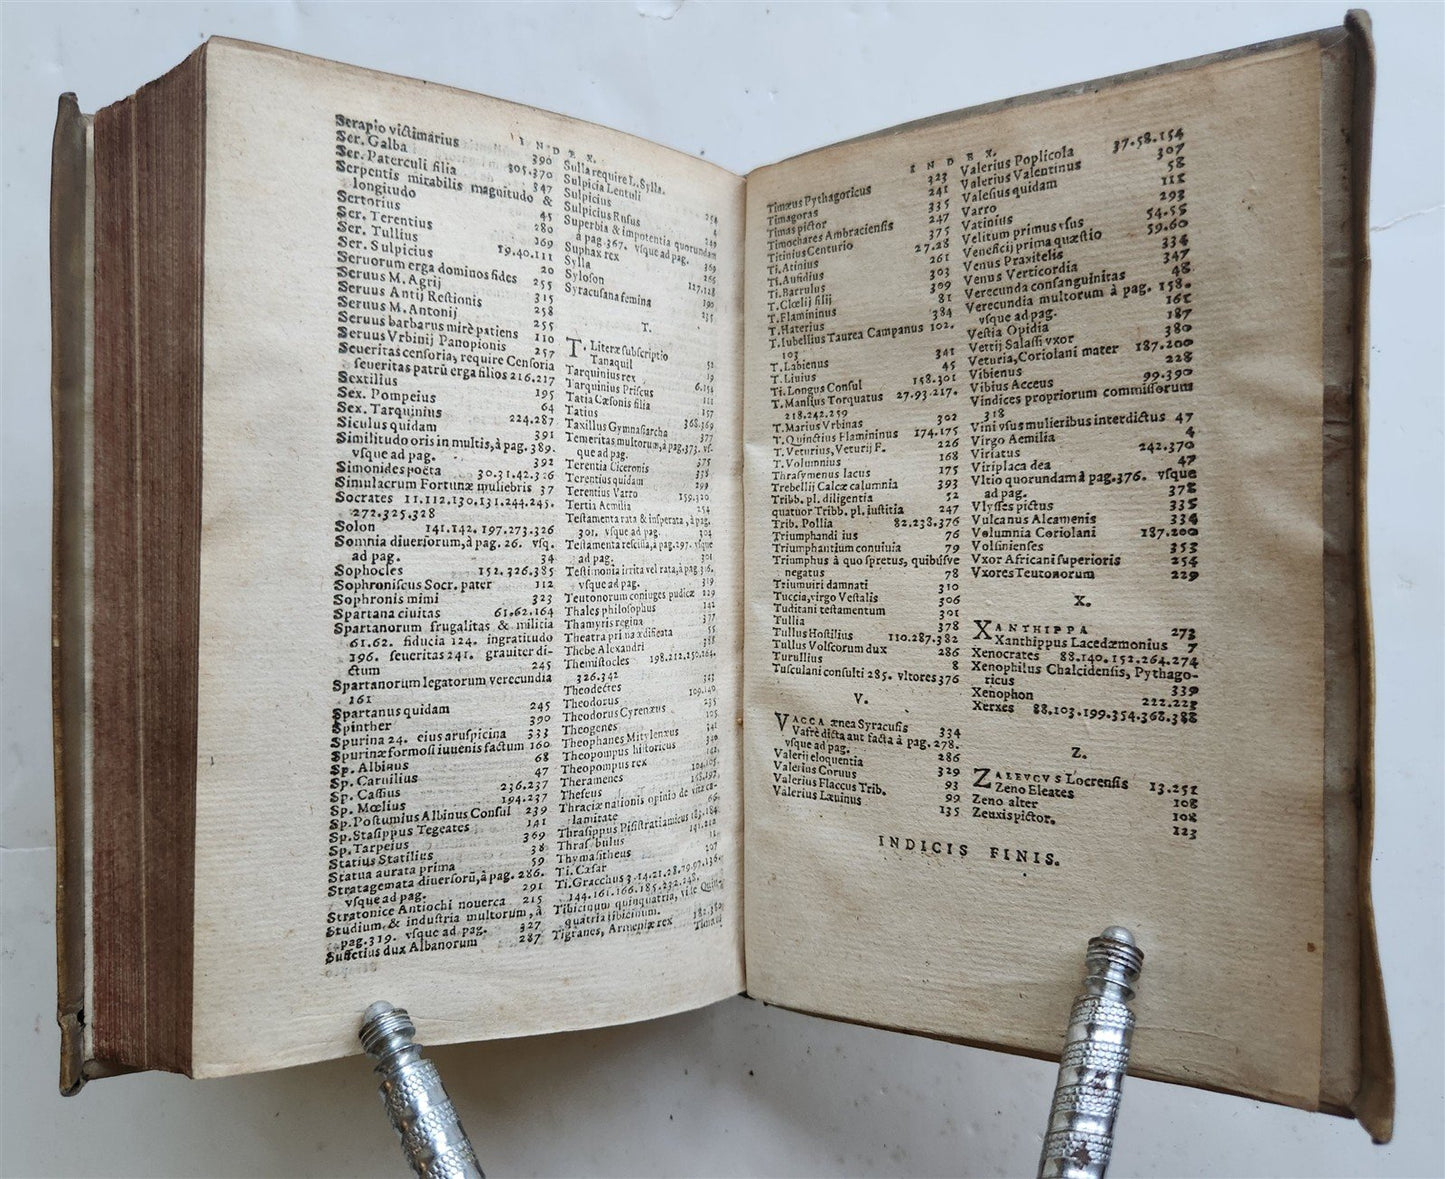 INDEX.
Serapio victimarius 390
Ser. Galba 305.370
Ser. Paterculi filia 347
Serpentis mirabilis magnitudo &
longitudo 45
Sertorius 280
Ser. Terentius 269
Ser. Tullius 19.40.111
Ser. Sulpicius 20
Seruorum erga dominos fides 255
Seruus M. Agrij 315
Seruus Antij Restionis 258
Seruus M. Antonij 255
Seruus barbarus mirè patiens 110
Seruus Vrbinij Panopionis 257
Seueritas censoria, require Censoria
seueritas patrū erga filios 216.217
Sextilius 195
Sex. Pompeius 64
Sex. Tarquinius 224.287
Siculus quidam 391
Similitudo oris in multis, à pag. 389.
vsque ad pag. 392
Simonides poëta 30.31.42.326
Simulacrum Fortunæ muliebris 37
Socrates 11.112.130.131.244.245.
272.325.328
Solon 141.142.197.273.326
Somnia diuersorum, à pag. 26. vsq.
ad pag. 34
Sophocles 152.326.385
Sophroniscus Socr. pater 112
Sophronis mimi 323
Spartana ciuitas 61.62.164
Spartanorum frugalitas & militia
61.62. fiducia 124. ingratitudo
196. seueritas 241. grauiter di-
ctum 245
Spartanorum legatorum verecundia
161
Spartanus quidam 245
Spinther 390
Spurina 24. eius aruspicina 333
Spurinæ formosi iuuenis factum 160
Sp. Albinus 68
Sp. Caruilius 47
Sp. Cassius 236.237
Sp. Mœlius 194.237
Sp. Postumius Albinus Consul 239
Sp. Stasippus Tegeates 141
Sp. Tarpeius 369
Statius Statilius 38
Statua aurata prima 59
Stratagemata diuersorū, à pag. 286.
vsque ad pag. 291
Stratonice Antiochi nouerca 215
Studium & industria multorum, à
pag. 319. vsque ad pag. 327
Suffetius dux Albanorum 287
Sulla require L. Sylla.
Sulpicia Lentuli 254
Sulpicius 4
Sulpicius Rufus 249
Superbia & impotentia quorundam
à pag. 367. vsque ad pag. 369
Suphax rex 266
Sylla 127.128
Syloson 190
Syracusana femina 235
T.
T. Literæ subscriptio 52
Tanaquil 19
Tarquinius rex 6.154
Tarquinius Priscus 111
Tatia Cæsonis filia 157
Tatius 368.369
Taxillus Gymnasiarcha 377
Temeritas multorum, à pag. 373. vs-
que ad pag. 375
Terentia Ciceronis 338
Terentius quidam 299
Terentius Varro 159.320
Tertia Aemilia 254
Testamenta rata & insperata, à pag.
301. vsque ad pag. 304
Testamenta rescissa, à pag. 297. vsque
ad pag. 301
Testimonia irrita vel rata, à pag. 316.
vsque ad pag. 319
Teutonorum coniuges pudicæ 229
Thales philosophus 142
Thamyris regina 377
Theatra primæ ædificata 55
Thebe Alexandri 388
Themistocles 198.212.250.264.
326.342 343
Theodectes 109.140
Theodorus 235
Theodorus Cyrenæus 105
Theogenes 341
Theophanes Mitylenæus 330
Theopompus historicus 142
Theopompus rex 104.105
Theramenes 158.197
Theseus
Thraciæ nationis opinio de vitæ ca-
lamitate 66
Thrasippus Pisistratiamicus 183.184
Thrasybulus 141.212
Thymasitheus 12
Ti. Cæsar 207
Ti. Gracchus 3.14.21.28.79.97.136.
144.161.166.185.232.248.
Tibicinum quinquatria, vide Quin-
quatria tibicinum.
Tigranes, Armeniæ rex 182.180
Timæus
INDEX.
Timæus Pythagoricus 323
Timagoras 241
Timas pictor 335
Timochares Ambraciensis 247
Titinius Centurio 375
Ti. Atinius 27.28
Ti. Aufidius 261
Ti. Barrulus 303
T. Clœlij filij 309
T. Flamininus 81
T. Haterius 384
T. Iubellius Taurea Campanus 102.
103
T. Labienus 341
T. Liuius 45
Ti. Longus Consul 158.301
T. Manlius Torquatus 27.93.217.
218.242.259
T. Marius Vrbinas 302
T. Quinctius Flamininus 174.175
T. Veturius, Veturij F. 226
T. Volumnius 168
Thrasymenus lacus 175
Trebellij Calcæ calumnia 393
Tribb. pl. diligentia 52
quatuor Tribb. pl. iustitia 247
Trib. Pollia 82.238.376
Triumphandi ius 76
Triumphantium conuiuia 79
Triumphus à quo spretus, quibúsve
negatus 78
Triumuiri damnati 310
Tuccia, virgo Vestalis 306
Tuditani testamentum 301
Tullia 378
Tullus Hostilius 110.287.382
Tullus Volscorum dux 286
Turullius 8
Tusculani consulti 285. vltores 376
V.
VACCA ænea Syracusis 334
Vafrè dicta aut facta à pag. 278.
vsque ad pag. 286
Valerij eloquentia 329
Valerius Coruus 93
Valerius Flaccus Trib. 99
Valerius Læuinus 135
Valerius Poplicola 37.58.154
Valerius Valentinus 307
Valesius quidam 58
Varro 111
Vatinius 293
Velitum primus vsus 54.55
Veneficij prima quæstio 59.60
Venus Praxitelis 334
Venus Verticordia 347
Verecunda consanguinitas 48
Verecundia multorum à pag. 158.
vsque ad pag. 161
Vestia Opidia 187
Vettij Salassi vxor 380
Veturia, Coriolani mater 187.200
Vibienus 228
Vibius Acceus 99.390
Vindices propriorum commissorum
318
Vini vsus mulieribus interdictus 47
Virgo Aemilia 4
Viriatus 242.370
Viriplaca dea 47
Vltio quorundam à pag. 376. vsque
ad pag. 378
Vlysses pictus 335
Vulcanus Alcamenis 334
Volumnia Coriolani 187.200
Volsinienses 353
Vxor Africani superioris 254
Vxores Teutonorum 229
X.
XANTHIPPA 273
Xanthippus Lacedæmonius 7
Xenocrates 88.140.152.264.274
Xenophilus Chalcidensis, Pythago-
ricus 339
Xenophon 222.225
Xerxes 88.103.199.354.368.388
Z.
ZALEVCVS Locrensis 13.251
Zeno Eleates 108
Zeno alter 108
Zeuxis pictor. 123
INDICIS FINIS.